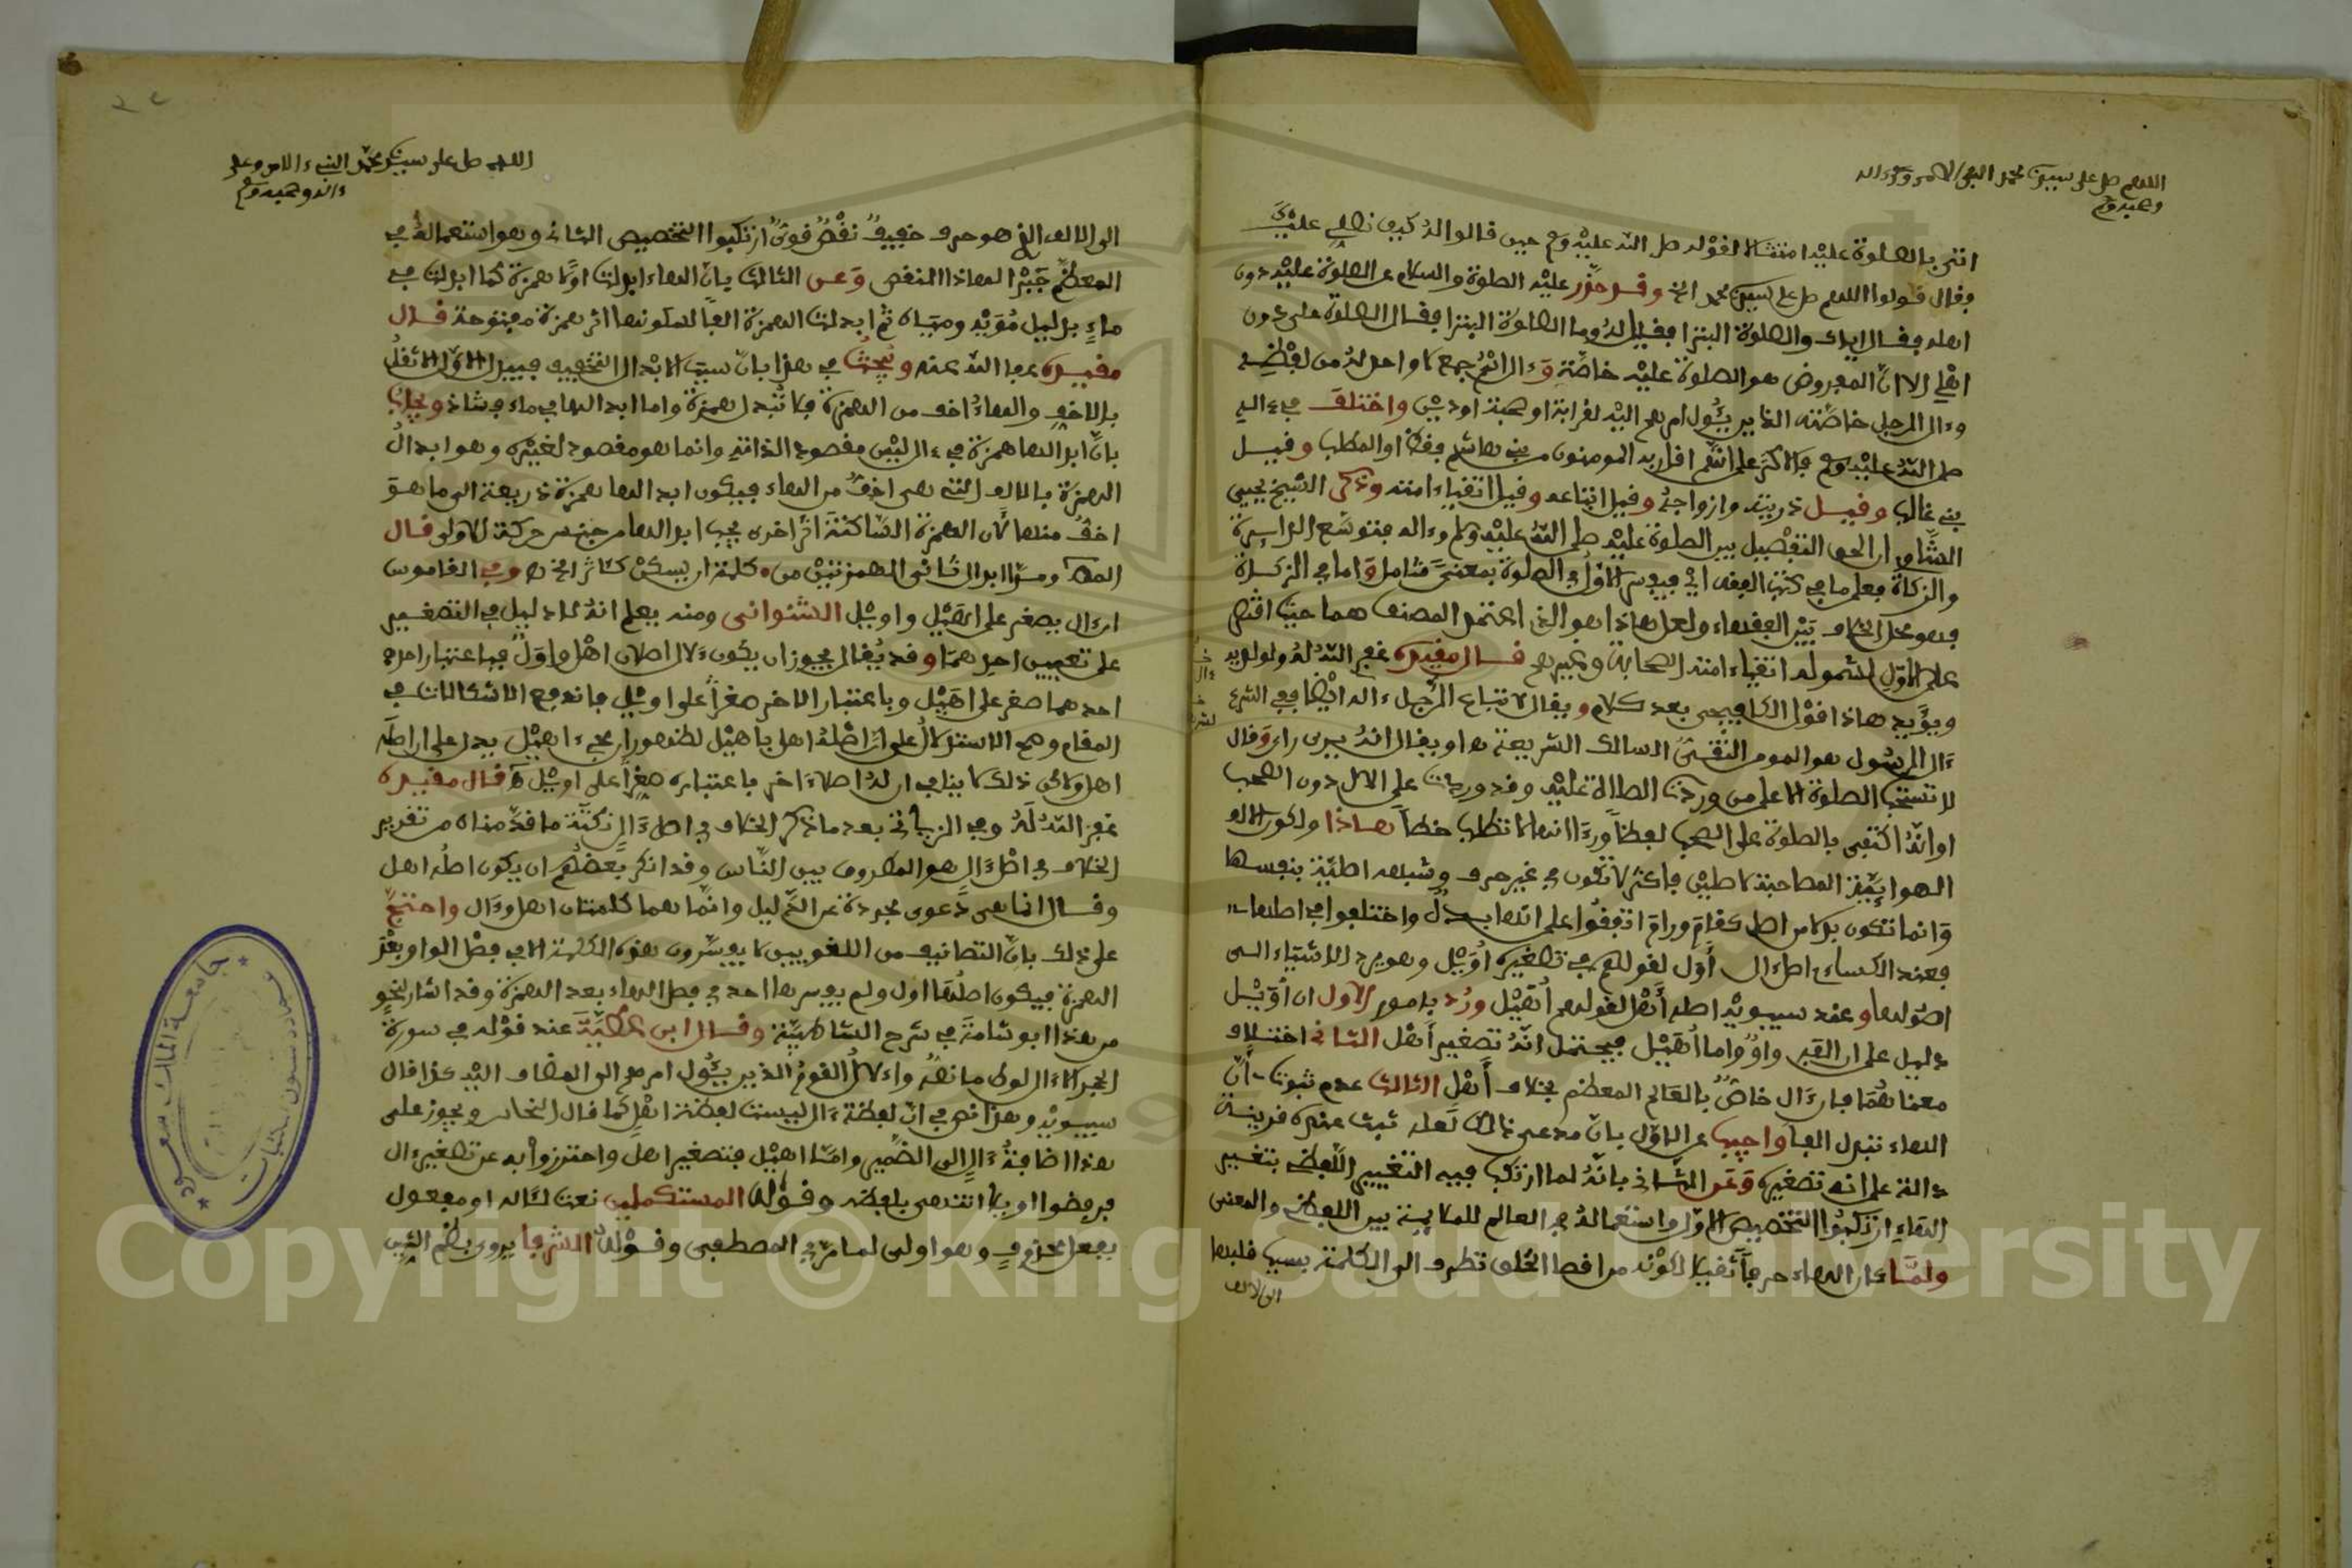 اللهم صل على سيدنا محمد النبي الامي وءاله
وصحبه وسلم
اتى بالصلوة عليه امتثالا لقوله صلى الله عليه وسلم حين قالوا له كيف نصلي عليك
فقال قولوا اللهم صل على سيدنا محمد الخ وقد حذر عليه الصلوة والسلام عن الصلوة عليه دون
اهله فقال اياك والصلوة البترا فقيل له وما الصلوة البترا فقال الصلوة علي دون
اهلي الا ان المفروض هو الصلوة عليه خاصة وءال اسم جمع لا واحد له من لفظه
وءال الرجل خاصته الذين يئول امرهم اليه لقرابة او صحبة او دين واختلف في ءاله
صلى الله عليه وسلم فالاكثر على انهم اقاربه المومنون من بني هاشم فقط او المطلب وقيل
بني غالب وقيل ذريته وازواجه وقيل اتباعه وقيل اتقياء امته وذكر الشيخ يحيى
الشاوي ان الحق التفصيل بين الصلوة عليه صلى الله عليه وسلم وءاله فتوسع الدايرة
والزكاة فعلى ما في كتب الفقه اي فيفسر الاول في الصلوة بمعنى شامل واما في الزكاة
فهو محل الخلاف بين الفقهاء ولعل هاذا هو الذي اعتمد المصنف هنا حيث اقتصر
على الاول لشموله اتقياء امته الصحابة وغيرهم قال مقيده غفر الله له ولوالديه
ويؤيد هاذا قول الكافيجي بعد كلام ويقال لاتباع الرجل ءاله ايضا ففي الشرع
ءال الرسول هو المومن التقي السالك الشريعة ه او يقال انه يرى راي وقال
لا تستحب الصلوة الا على من وردت الصلاة عليه وقد وردت على الال دون الصحب
او انه اكتفى بالصلوة على الصحب لفظا ورءا انها لا تطلب خطا هاذا ولكون الالف
الهوايية المصاحبة لا طبيي فاكثر لا تكون في غير حرف وشبهه اصلية بنفسها
وانما تكون بدلا من اصل كقام ورام اتفقوا على انها بدل واختلفوا في اصلها
فعند الكساءي اصل ءال أول لقولهم في تصغيره اويل وهو يرد الاشياء الى
اصولها وعند سيبويه اصله أهل لقولهم أهيل ورد بامور الاول ان أويل
دليل على ان الفه واو واما أهيل فيحتمل انه تصغير أهل الثاني اختلاف
معناهما فان ءال خاص بالعالم المعظم بخلاف أهل الثالث عدم ثبوت أن
الهاء تبدل الفا واجيب عن الاول بان مدعي ذالك لعله ثبت عنده قرينة
دالة على انه تصغيره وعن الثاني بانه لما ارتكب فيه التغيير اللفظي بتغيير
الهاء ارتكبوا التخصيص الاول واستعماله في العالم للملايمة بين اللفظ والمعنى
ولما كان الهاء حرفا ثقيلا لكونه من اقصا الحلق تطرق الى الكلمة بسبب قلبها
الى الالف
اللهم صل على سيدنا محمد النبيء الامي وعلى
ءاله وصحبه وسلم
الى الالف الذي هو حرف خفيف نقص قوي ارتكبوا التخصيص الثاني وهو استعماله في
المعظم جبرا لهاذا النقص وعن الثالث بان الهاء ابدلت اولا همزة كما ابدلت في
ماء بدليل مويه ومياه ثم ابدلت الهمزة الفا لسكونها اثر همزة مفتوحة قال
مقيده عفا الله عنه ويبحث في هذا بان سبب الابدال التخفيف فيبدل الاول الاثقل
بالاخف والهاء اخف من الهمزة فلا تبدل همزة واما ابدالها في ماء فشاذ ويجاب
بان ابدالها همزة في ءال ليس مقصودا لذاته وانما هو مقصود لغيره وهو ابدال
الهمزة بالالف التي هي اخف من الهاء فيكون ابدالها همزة ذريعة الى ما هو
اخف منها لان الهمزة الساكنة اثر اخرى يجب ابدالها من جنس حركة الاولى قال
المصنف ومدا ابدل ثاني الهمزتين من كلمة ان يسكن كئاثر الخ ه وفي القاموس
ان ءال يصغر على اهيل واويل الشنواني ومنه يعلم انه لا دليل في التصغير
على تعيين احدهما وقد يقال يجوز ان يكون لال اصلان اهل واول فباعتبار احدهما
احدهما صغر على اهيل وباعتبار الاخر صغر على اويل فاندفع الاشكالات في
المقام وهي الاستدلال على ان اصله اهل باهيل لظهور ان مجيء اهيل يدل على ان اصله
اهل ولاكن ذلك لا ينافي ان له اصلا ءاخر باعتباره صغر على اويل ه قال مقيده
غفر الله له وفي الزياتي بعد ما ذكر الخلاف في اصل ءال نكتة ما قدمناه من تقرير
الخلاف في اصل ءال هو المعروف بين الناس وقد انكر بعضهم ان يكون اصله اهل
وقال انما هي دعوى مجردة عن الدليل وانما هما كلمتان اهل وءال واحتج
على ذلك بان التصانيف من اللغويين لا يفسرون هذه الكلمة الا في فصل الواو بعد
الهمزة فيكون اصلها اول ولم يفسرها احد في فصل الهاء بعد الهمزة وقد اشار لنحو
من هذا ابو شامة في شرح الشاطبية وقال ابن عطية عند قوله في سورة
الحجر الا ءال لوط ما نصه وءال القوم الذين يئول امرهم الى المضاف اليه كذا قال
سيبويه وهذا نص في ان لفظة ءال ليست لفظة اهل كما قال النحاس ويجوز على
هذا اضافة ءال الى الضمير واما اهيل فتصغير اهل واجتزوا به عن تصغير ءال
فرفضوا اويلا انتهى بلفظه وقوله المستكملين نعت لئاله او مفعول
بفعل محذوف وهو اولى لما مر في المصطفى وقوله الشرفا يروى بضم الشين
جامعة الملك سعود